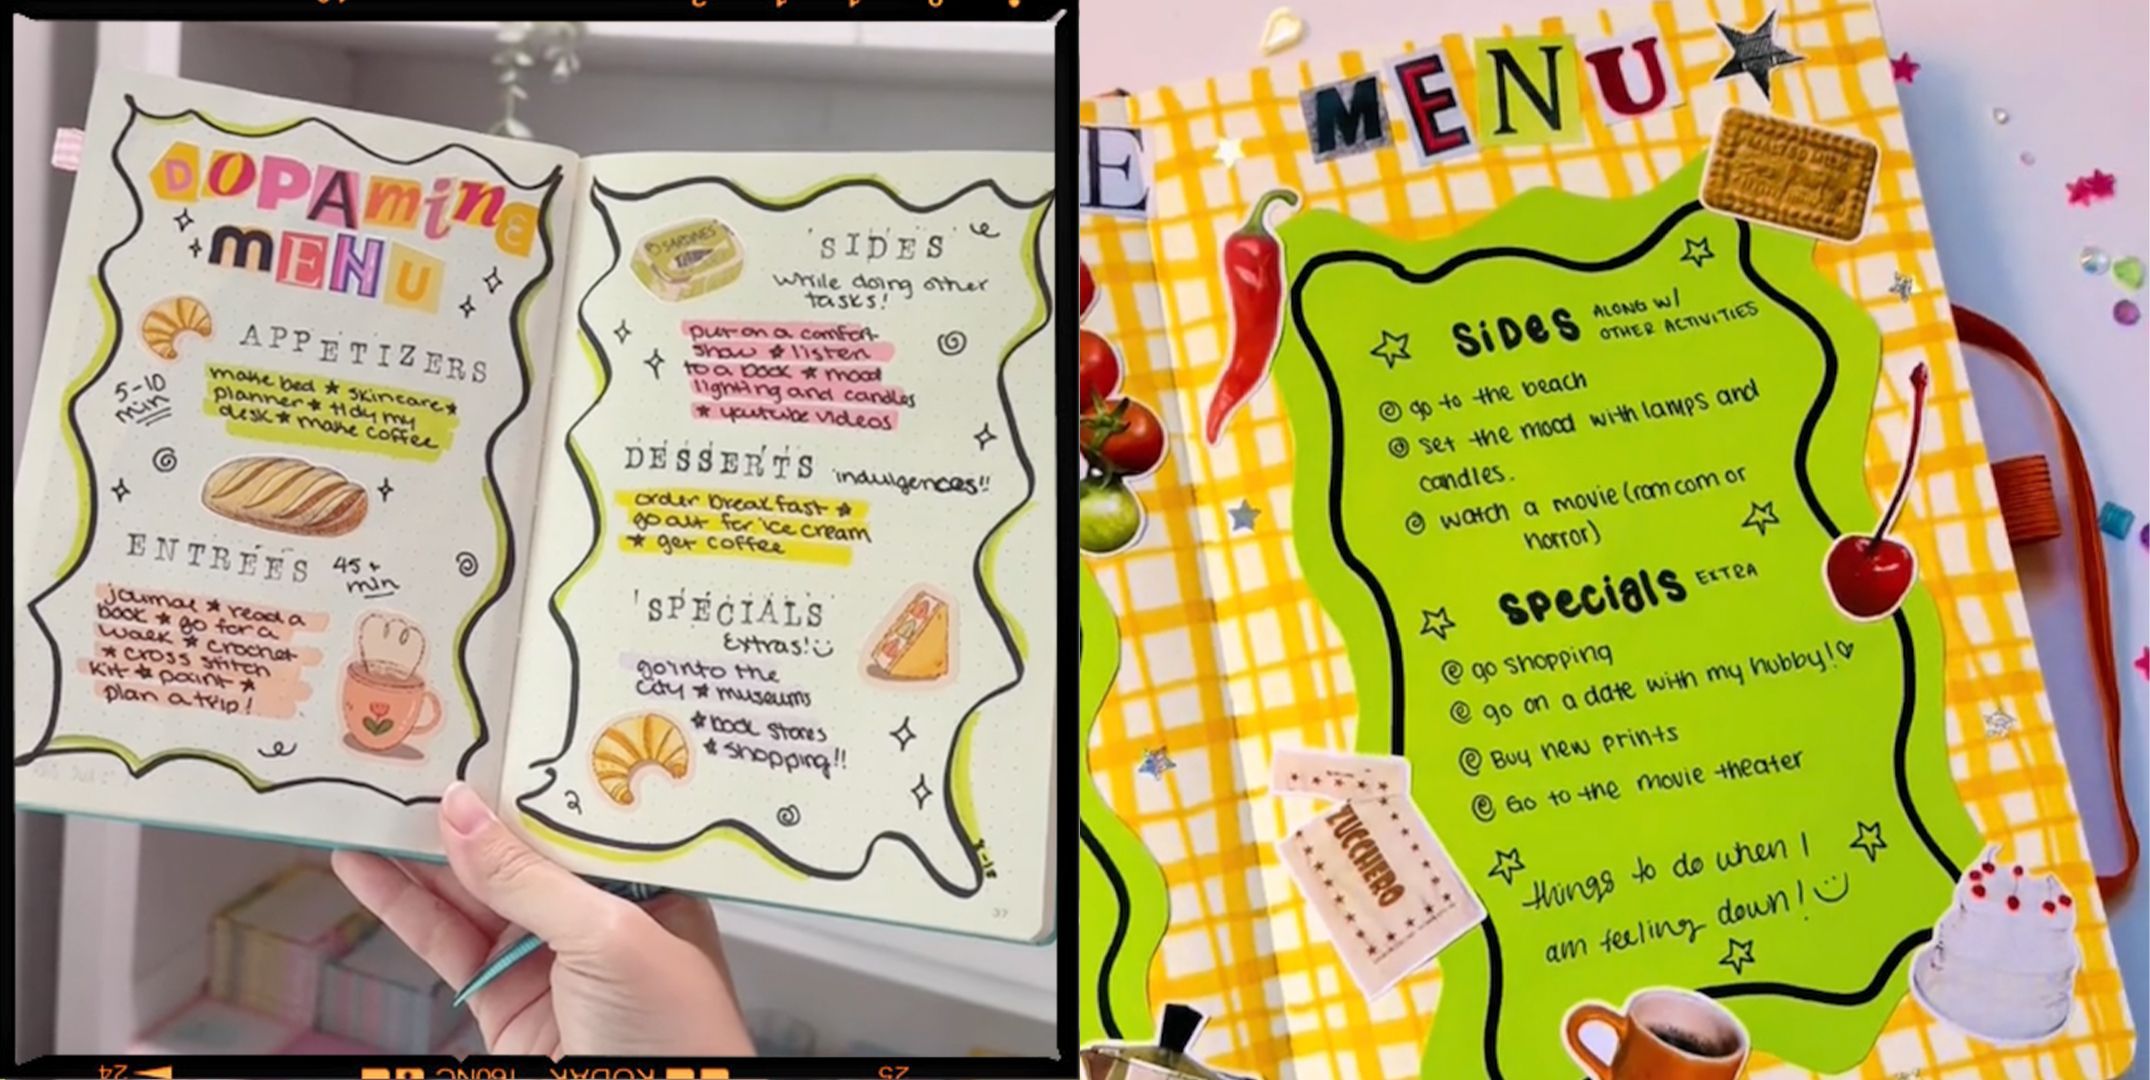 DOPAminE
mENU
APPETIZERS
5-10
min
make bed ★ skincare ★
planner ★ tidy my
desk ★ make coffee
ENTRÉES 45+
min
journal ★ read a
book ★ go for a
walk ★ crochet
★ cross stitch
kit ★ paint ★
plan a trip!
SARDINES
'SIDES'
while doing other
tasks!
put on a comfort
show ★ listen
to a book ★ mood
lighting and candles
★ youtube videos
DESSERTS indulgences!!
order breakfast ★
go out for ice cream
★ get coffee
'SPECIALS
Extras!
go into the
city ★ museums
★ book stores
★ shopping!!
37
24
25
KODAK
160NC
E
MENU
MALTED MILK
SiDES ALONG W/
OTHER ACTIVITIES
go to the beach
set the mood with lamps and
candles.
watch a movie (romcom or
horror)
specials EXTRA
go shopping
go on a date with my hubby!
Buy new prints
Go to the movie theater
things to do when I
am feeling down!
ZUCCHERO